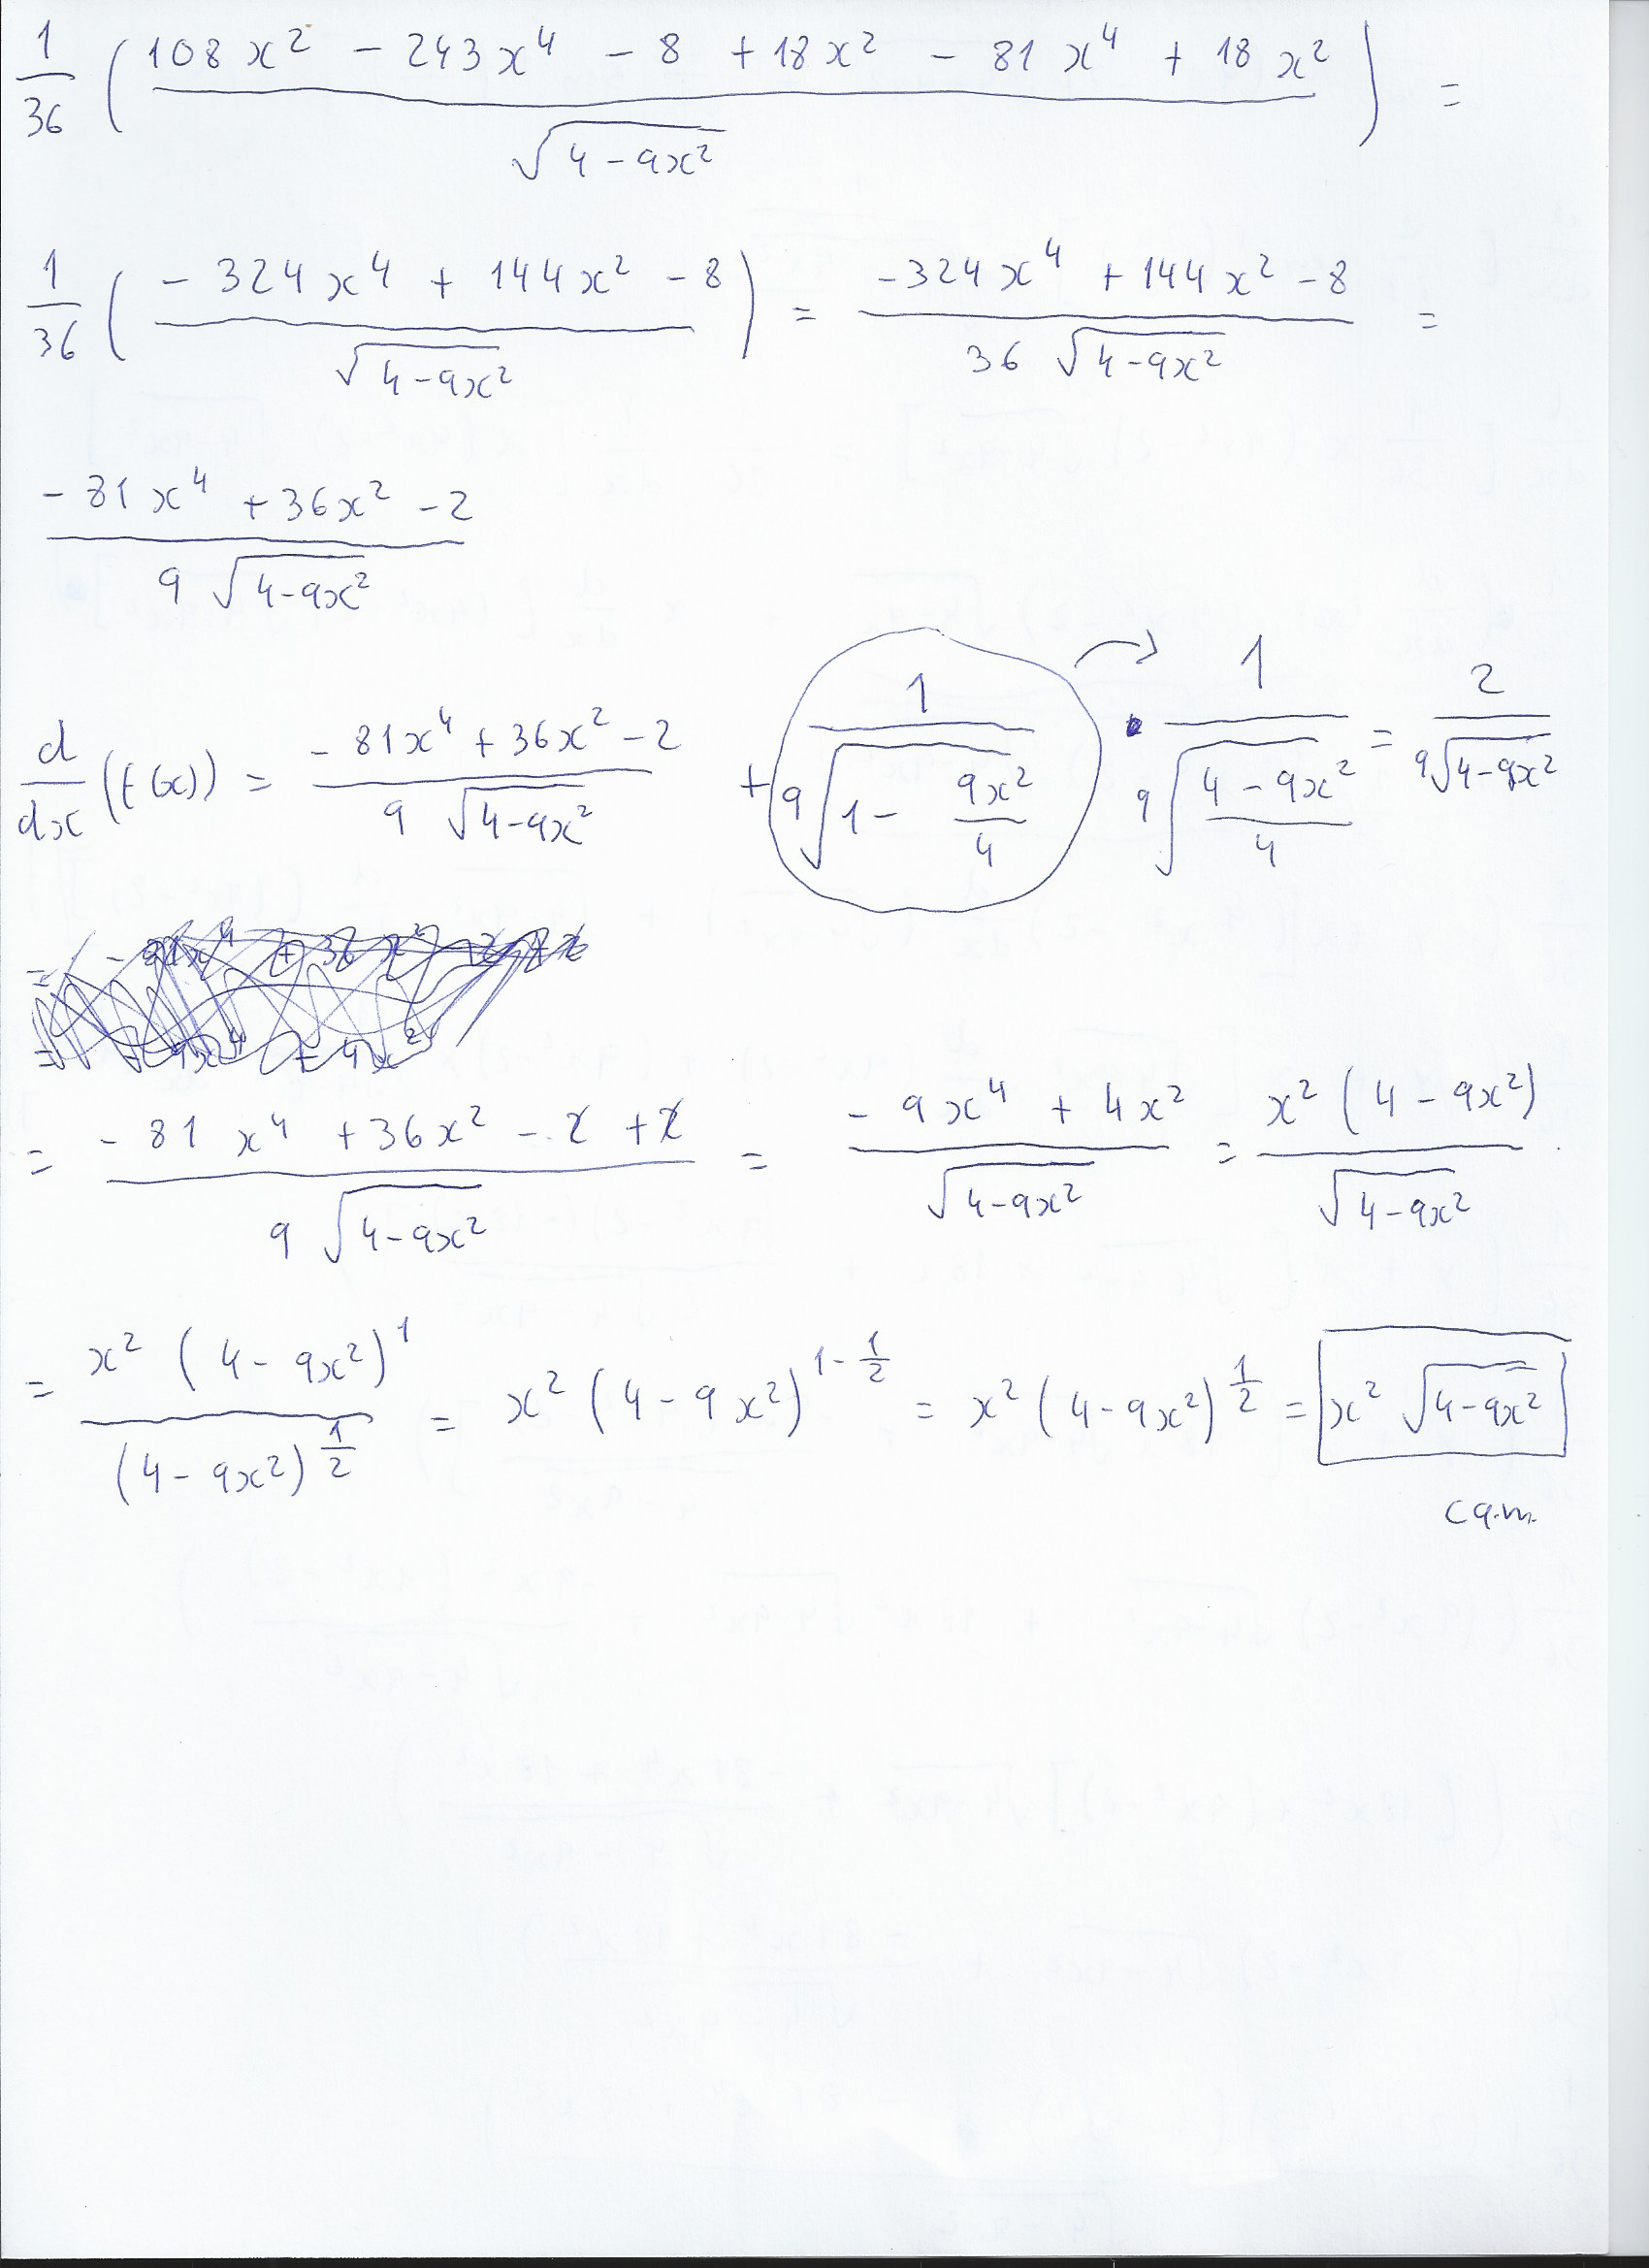 1/36 ( (108x² - 243x⁴ - 8 + 18x² - 81x⁴ + 18x²) / √(4-9x²) ) =
1/36 ( (-324x⁴ + 144x² - 8) / √(4-9x²) ) = (-324x⁴ + 144x² - 8) / (36 √(4-9x²)) =
(-81x⁴ + 36x² - 2) / (9 √(4-9x²))
d/dx (f(x)) = (-81x⁴ + 36x² - 2) / (9 √(4-9x²)) + 1 / (9 √(1 - 9x²/4)) → 1 / (9 √((4-9x²)/4)) = 2 / (9√(4-9x²))
= (-81x⁴ + 36x² - 2 + 2) / (9 √(4-9x²)) = (-9x⁴ + 4x²) / √(4-9x²) = x² (4-9x²) / √(4-9x²)
= x² (4-9x²)¹ / (4-9x²)^(1/2) = x² (4-9x²)^(1-1/2) = x² (4-9x²)^(1/2) = x² √(4-9x²)
cqm.